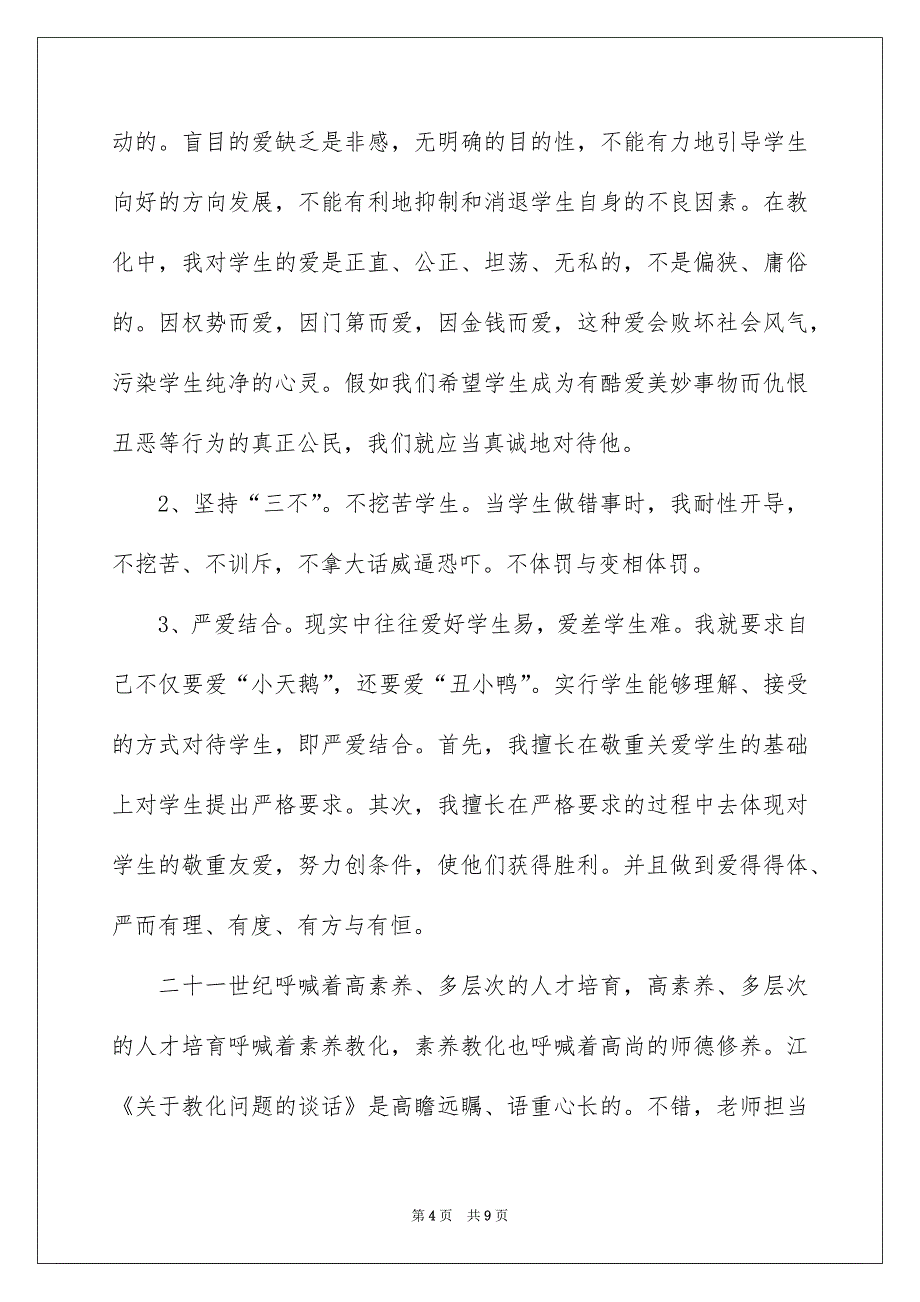 动的。盲目的爱缺乏是非感，无明确的目的性，不能有力地引导学生
向好的方向发展，不能有利地抑制和消退学生自身的不良因素。在教
化中，我对学生的爱是正直、公正、坦荡、无私的，不是偏狭、庸俗
的。因权势而爱，因门第而爱，因金钱而爱，这种爱会败坏社会风气，
污染学生纯净的心灵。假如我们希望学生成为有酷爱美妙事物而仇恨
丑恶等行为的真正公民，我们就应当真诚地对待他。
2、坚持“三不”。不挖苦学生。当学生做错事时，我耐性开导，
不挖苦、不训斥，不拿大话威逼恐吓。不体罚与变相体罚。
3、严爱结合。现实中往往爱好学生易，爱差学生难。我就要求自
己不仅要爱“小天鹅”，还要爱“丑小鸭”。实行学生能够理解、接受
的方式对待学生，即严爱结合。首先，我擅长在敬重关爱学生的基础
上对学生提出严格要求。其次，我擅长在严格要求的过程中去体现对
学生的敬重友爱，努力创条件，使他们获得胜利。并且做到爱得得体、
严而有理、有度、有方与有恒。
二十一世纪呼喊着高素养、多层次的人才培育，高素养、多层次
的人才培育呼喊着素养教化，素养教化也呼喊着高尚的师德修养。江
《关于教化问题的谈话》是高瞻远瞩、语重心长的。不错，老师担当
第4页 共9页